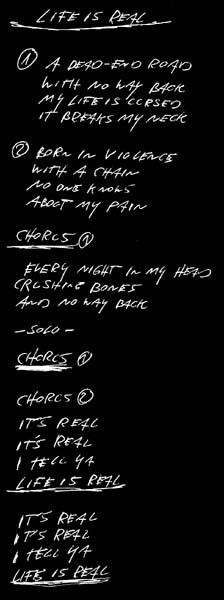 LIFE IS REAL
① A DEAD-END ROAD
WITH NO WAY BACK
MY LIFE IS CURSED
IT BREAKS MY NECK
② BORN IN VIOLENCE
WITH A CHAIN
NO ONE KNOWS
ABOUT MY PAIN
CHORUS ①
EVERY NIGHT IN MY HEAD
CRUSHING BONES
AND NO WAY BACK
- SOLO -
CHORUS ①
CHORUS ②
IT'S REAL
IT'S REAL
I TELL YA
LIFE IS REAL
IT'S REAL
IT'S REAL
I TELL YA
LIFE IS REAL